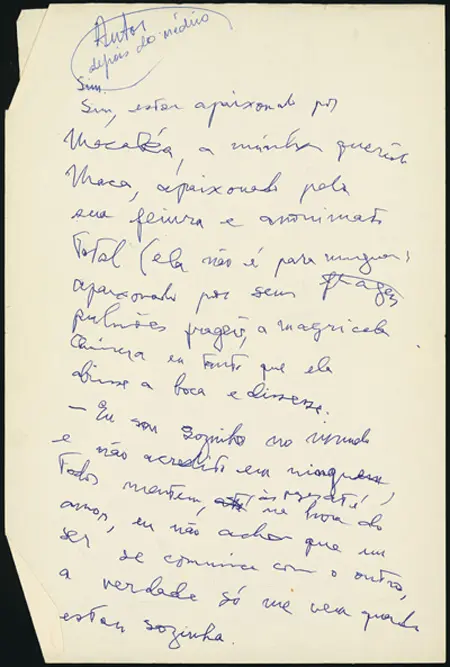 Autor
depois do médico
Sim.
Sim, estou apaixonado por
Macabéa, a minha querida
Maca, apaixonado pela
sua feiura e anonimato
total (ela não é para ninguém)
apaixonado por seus frageis
pulmões frageis, a magricela
Quisera eu tanto que ela
abrisse a boca e dissesse:
— Eu sou sozinha no mundo
e não acredito em ninguem,
todos mentem, às vezes até na hora do
amor, eu não acho que um
ser se comunica com o outro,
a verdade só me vem quando
estou sozinha.